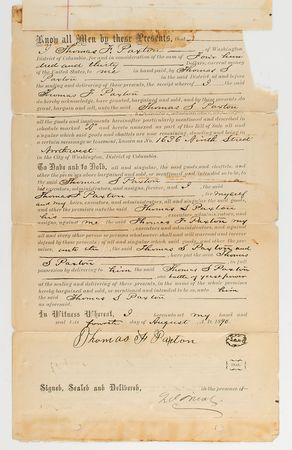 Know all Men by these Presents, That
I Thomas F. Paxton of Washington
District of Columbia, for and in consideration of the sum of Four hun
dred and thirty Dollars, current money
of the United States, to me in hand paid, by Thomas S
Paxton in the said District at and before
the sealing and delivering of these presents, the receipt whereof I the said
Thomas F. Paxton
do hereby acknowledge, have granted, bargained and sold, and by these presents do
grant, bargain and sell, unto the said Thomas S Paxton
all the goods and implements hereinafter particularly mentioned and described in
schedule marked "A" and hereto annexed as part of this Bill of Sale all and
singular which said goods and chattels are now remaining, standing and being in
a certain messuage or tenement, known as No. 1636 Ninth Street
Northwest
in the City of Washington, District of Columbia.
To Have and to Hold, all and singular, the said goods and chattels, and
other the premises above bargained and sold, or mentioned and intended so to be,
to the said Thomas S Paxton
executors, administrators, and assigns, forever, and I, the said
Thomas F Paxton for myself
and my heirs, executors, and administrators, all and singular, the said goods
unto the said Thomas S Paxton
his executors, administrators, and
assigns, against me the said Thomas F Paxton my
executors and administrators, and against
all and every other person or persons whomsoever, shall and will warrant and forever
defend by these presents; of all and singular which said goods, and other the
premises, unto the said Thomas S Paxton and
have put the said Thomas
S Paxton
possession by delivering to him the said Thomas S Paxton
one bottle of
at the sealing and delivering of these presents, in the name of the whole premises
hereby bargained and sold, or mentioned and intended so to be, unto him
the said Thomas S Paxton
as aforesaid.
In Witness Whereof, I hereunto set my hand and
seal this fourth day of August A.D. 1890.
Thomas F Paxton Seal
Seal
Signed, Sealed and Delivered, in the presence of